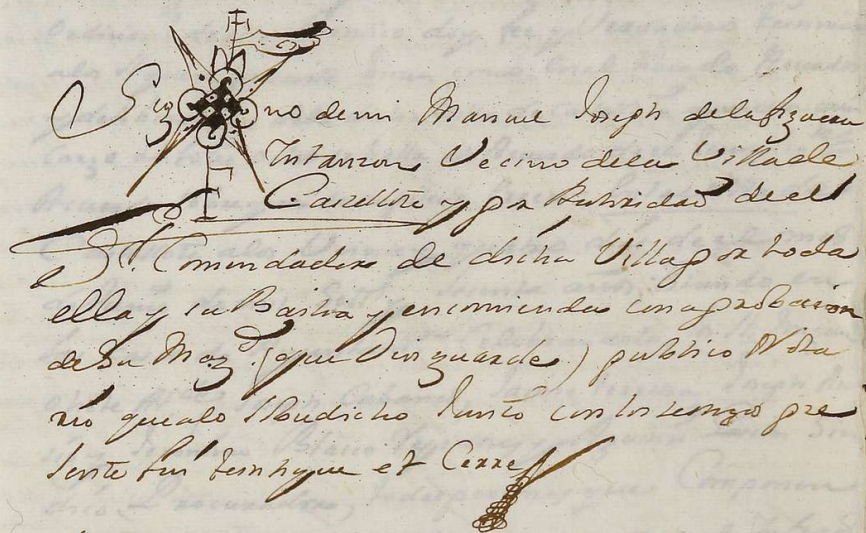 Sig no de mi Manuel Joseph de la figuera
Infanzon Vecino de la Villa de
Castellote y por Authoridad de el
Sr. Comendador de dicha Villa por toda
ella y su Bailia y encomienda con aprobacion
de Su Mag.d (que Dios guarde) publico Nota
rio que a lo Sobredicho Junto con los testigos pre
sente fui testifique et Cerre